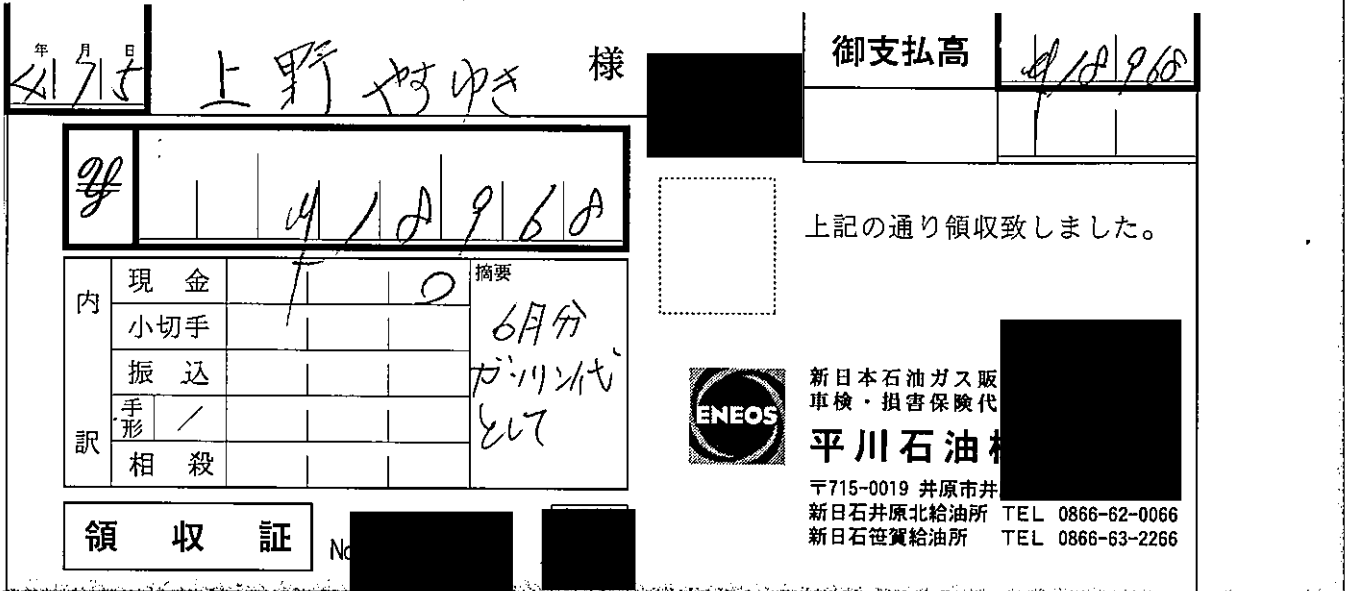 年 月 日
7 5
上野 やすゆき 様
御支払高 ¥18,968
¥ ¥18968
上記の通り領収致しました。
内訳
現金 0
小切手
振込
手形 /
相殺
摘要
6月分
ガソリン代
として
ENEOS
新日本石油ガス販
車検・損害保険代
平川石油
〒715-0019 井原市井
新日石井原北給油所 TEL 0866-62-0066
新日石笹賀給油所 TEL 0866-63-2266
領収証
No